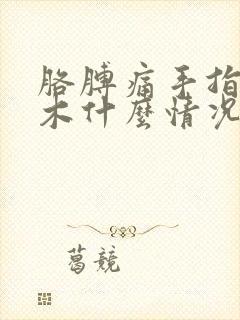 胳膊痛手指
木什麼情况
葛競